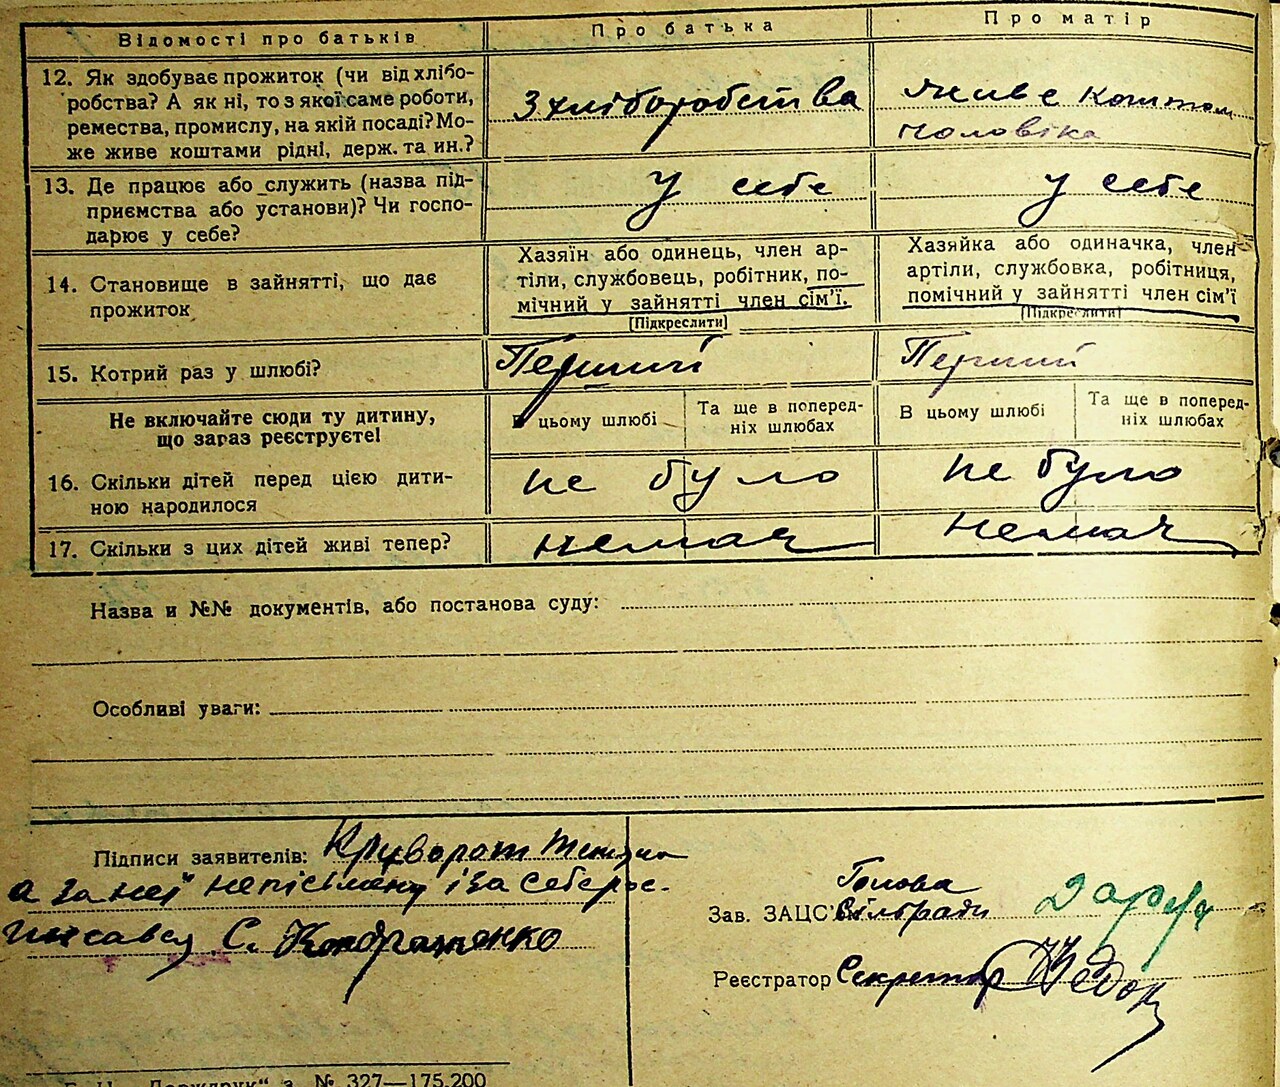 Відомості про батьків
Про батька
Про матір
12. Як здобуває прожиток (чи від хлібо-
робства? А як ні, то з якої саме роботи,
ремества, промислу, на якій посаді? Мо-
же живе коштами рідні, держ. та ин.?
З хліборобства
Живе коштом
чоловіка
13. Де працює або служить (назва під-
приємства або установи)? Чи госпо-
дарює у себе?
У себе
У себе
14. Становище в зайнятті, що дає
прожиток
Хазяїн або одинець, член ар-
тіли, службовець, робітник, по-
мічний у зайнятті член сім'ї.
[Підкреслити]
Хазяйка або одиначка, член
артіли, службовка, робітниця,
помічний у зайнятті член сім'ї
[Підкреслити]
15. Котрий раз у шлюбі?
Перший
Перший
Не включайте сюди ту дитину,
що зараз реєструєте!
В цьому шлюбі
Та ще в поперед-
ніх шлюбах
В цьому шлюбі
Та ще в поперед-
ніх шлюбах
16. Скільки дітей перед цією дити-
ною народилося
не було
не було
17. Скільки з цих дітей живі тепер?
немає
немає
Назва и №№ документів, або постанова суду:
Особливі уваги:
Підписи заявителів: Круворот
а за неї неписьмену і за себе рос-
писався С. Кондратенко
Голова
Зав. ЗАЦС'У Сільради
Реєстратор Секретар
„Держдрук" з. № 327—175.200